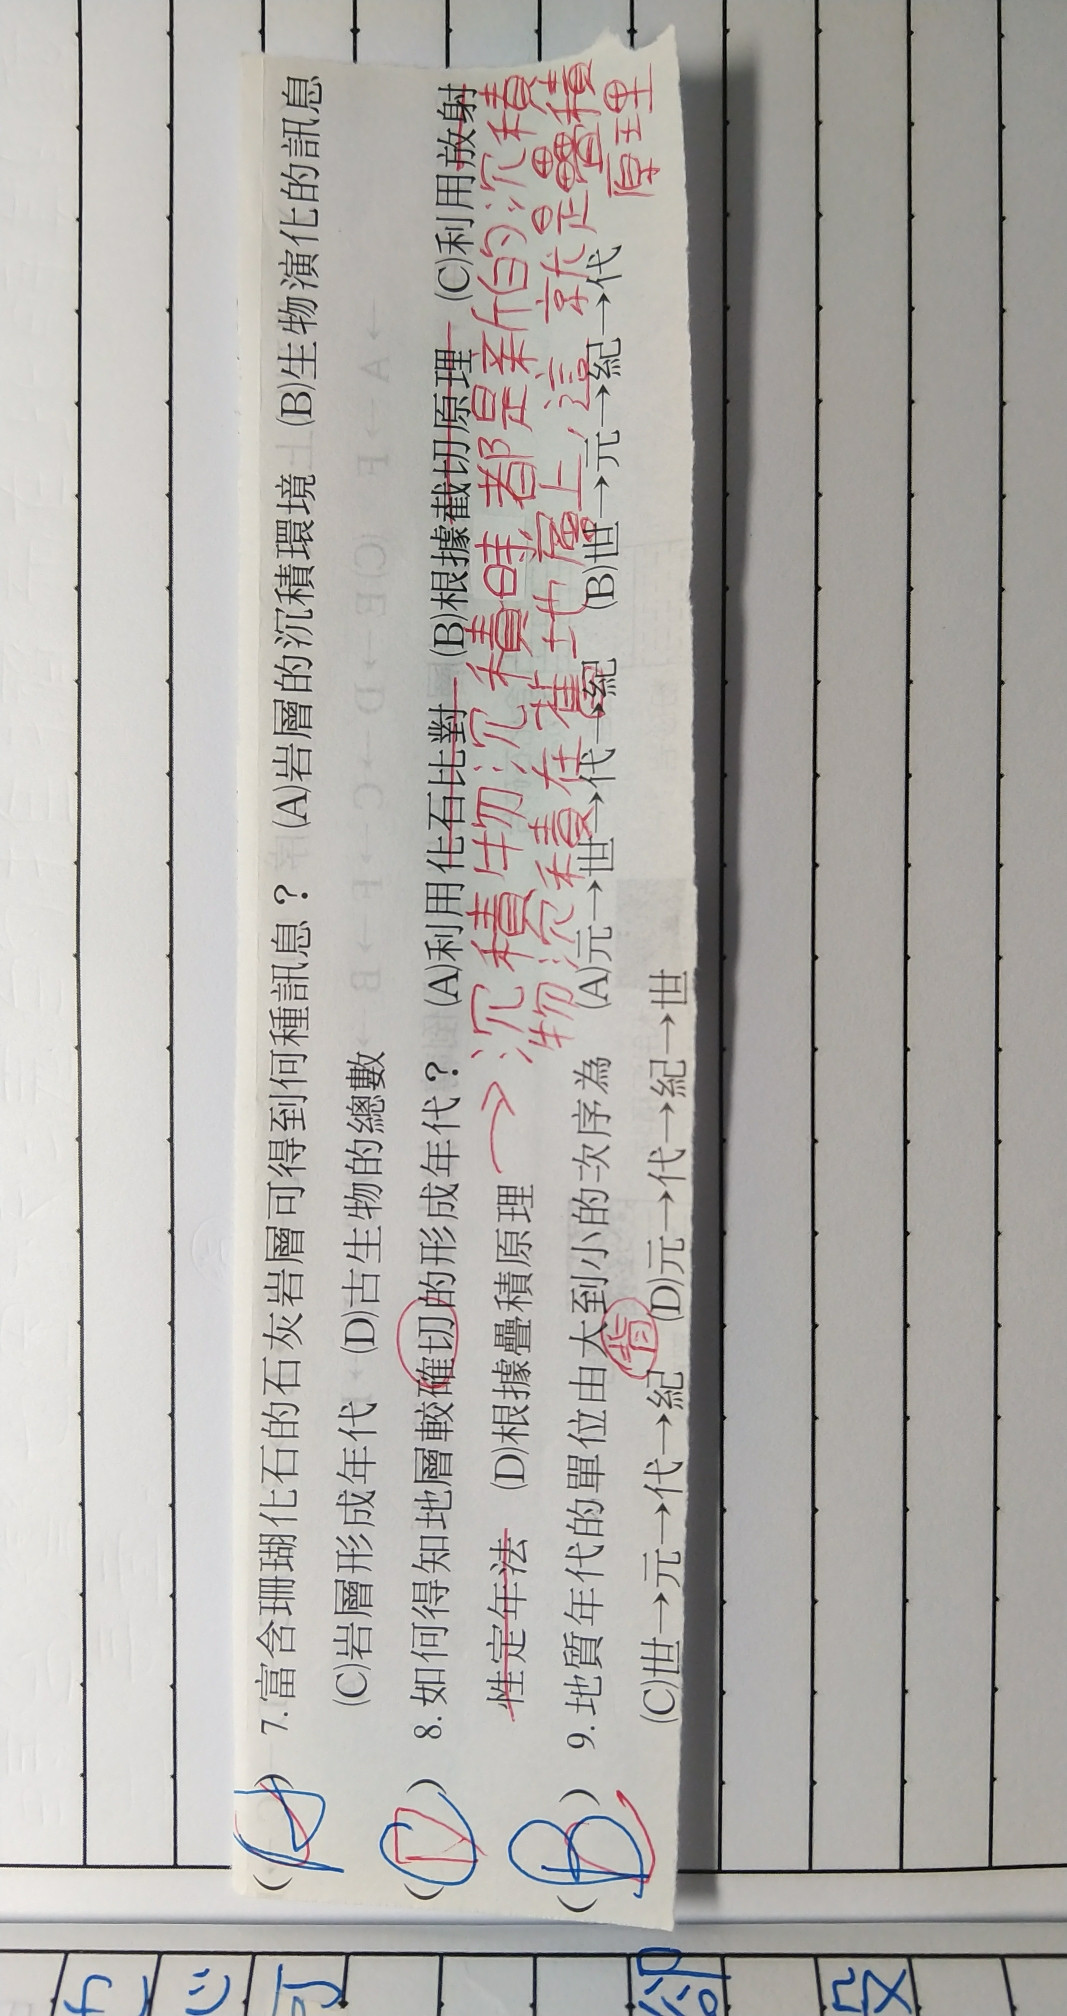 (A) 7.富含珊瑚化石的石灰岩層可得到何種訊息？ (A)岩層的沉積環境 (B)生物演化的訊息
(C)岩層形成年代 (D)古生物的總數
( ) 8.如何得知地層較確切的形成年代？ (A)利用化石比對 (B)根據截切原理 (C)利用放射
性定年法 (D)根據疊積原理 → 沉積物沉積時都是新的沉積
物沉積在舊地層上，這就是疊積
原理
(B) 9.地質年代的單位由大到小的次序為 (A)元→世→代→紀 (B)世→元→紀→代
背
(C)世→元→代→紀 (D)元→代→紀→世
心
可
卻